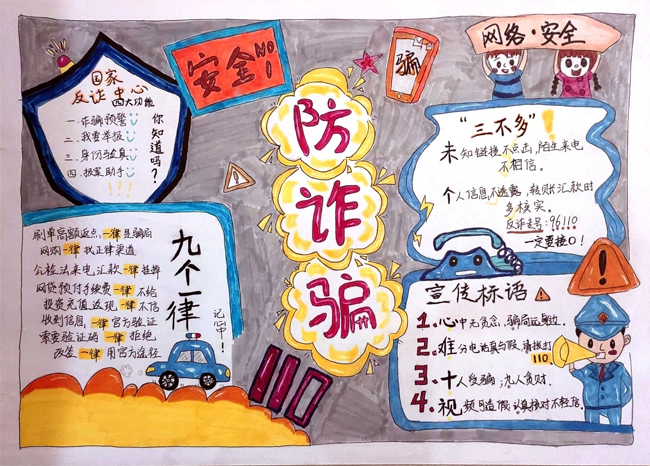 国家
反诈中心
四大功能
一、诈骗预警
二、我要举报
三、身份验真
四、报案助手
!!!
你知道吗?
安全NO1
骗
网络·安全
防
诈
骗
"三不多"!
未知链接不点击,陌生来电
不相信。
个人信息不透露,转账汇款时
多核实。
反诈专号:96110
一定要接!
九个一律
记心中!
刷单高额返点 一律 是骗局
网购 一律 找正律渠道
公检法来电汇款 一律 挂掉
网贷预付手续费 一律 不给
投资充值返现 一律 不信
收到信息, 一律 官方验证
索要验证码 一律 拒绝
改签 一律 用官方途径
110
宣传标语
1.心中无贪念,骗局远身边.
2.难分电话真与假,请拨打
110
3.十人受骗,九人贪财.
4.视频可造假,认真核对不轻信.